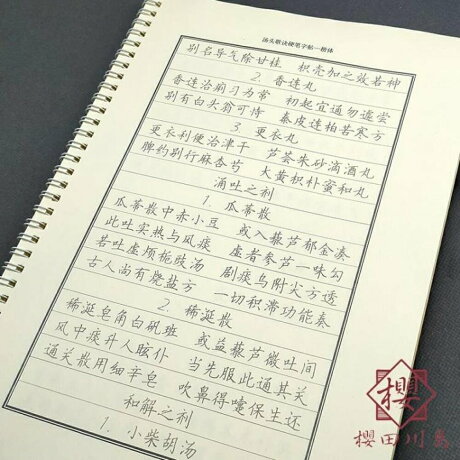 汤头歌诀硬笔字帖—楷体
别名导气除甘桂 枳壳加之效若神
2. 香连丸
香连治痢习为常 初起宜通勿遽尝
别有白头翁可恃 秦皮连柏苦寒方
3 更衣丸
更衣利便治津干 芦荟朱砂滴酒丸
脾约别行麻杏芍 大黄枳朴蜜和丸
涌吐之剂
1. 瓜蒂散
瓜蒂散中赤小豆 或入藜芦郁金凑
此吐实热与风痰 虚者参芦一味勾
若吐虚烦栀豉汤 剧痰乌附尖方透
古人尚有烧盐方 一切积滞功能奏
2. 稀涎散
稀涎皂角白矾班 或益藜芦微吐间
风中痰升人眩仆 当先服此通其关
通关散用细辛皂 吹鼻得嚏保生还
和解之剂
1. 小柴胡汤
櫻
櫻田川島